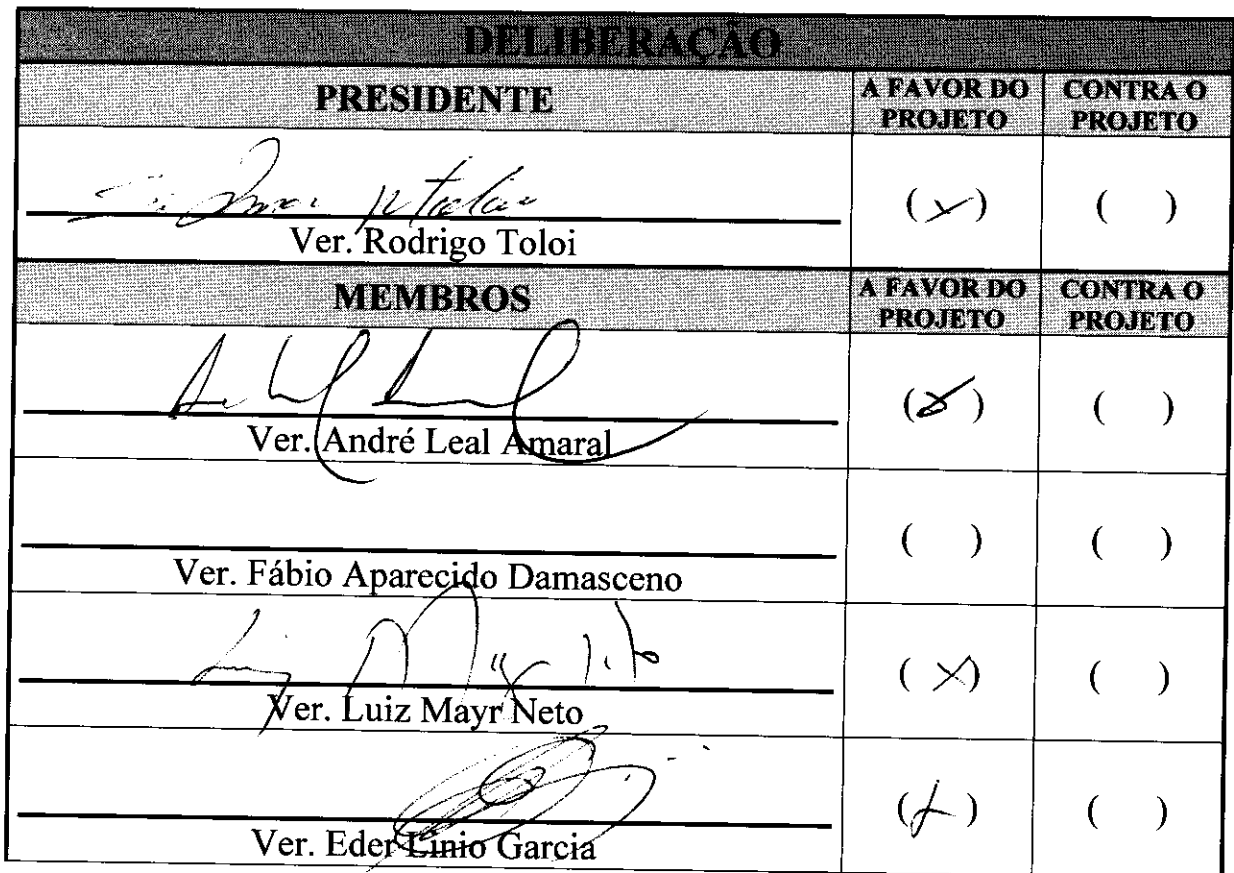 DELIBERAÇÃO
PRESIDENTE A FAVOR DO PROJETO CONTRA O PROJETO
(x) ( )
Ver. Rodrigo Toloi
MEMBROS A FAVOR DO PROJETO CONTRA O PROJETO
(x) ( )
Ver. André Leal Amaral
( ) ( )
Ver. Fábio Aparecido Damasceno
(x) ( )
Ver. Luiz Mayr Neto
(x) ( )
Ver. Eder Linio Garcia